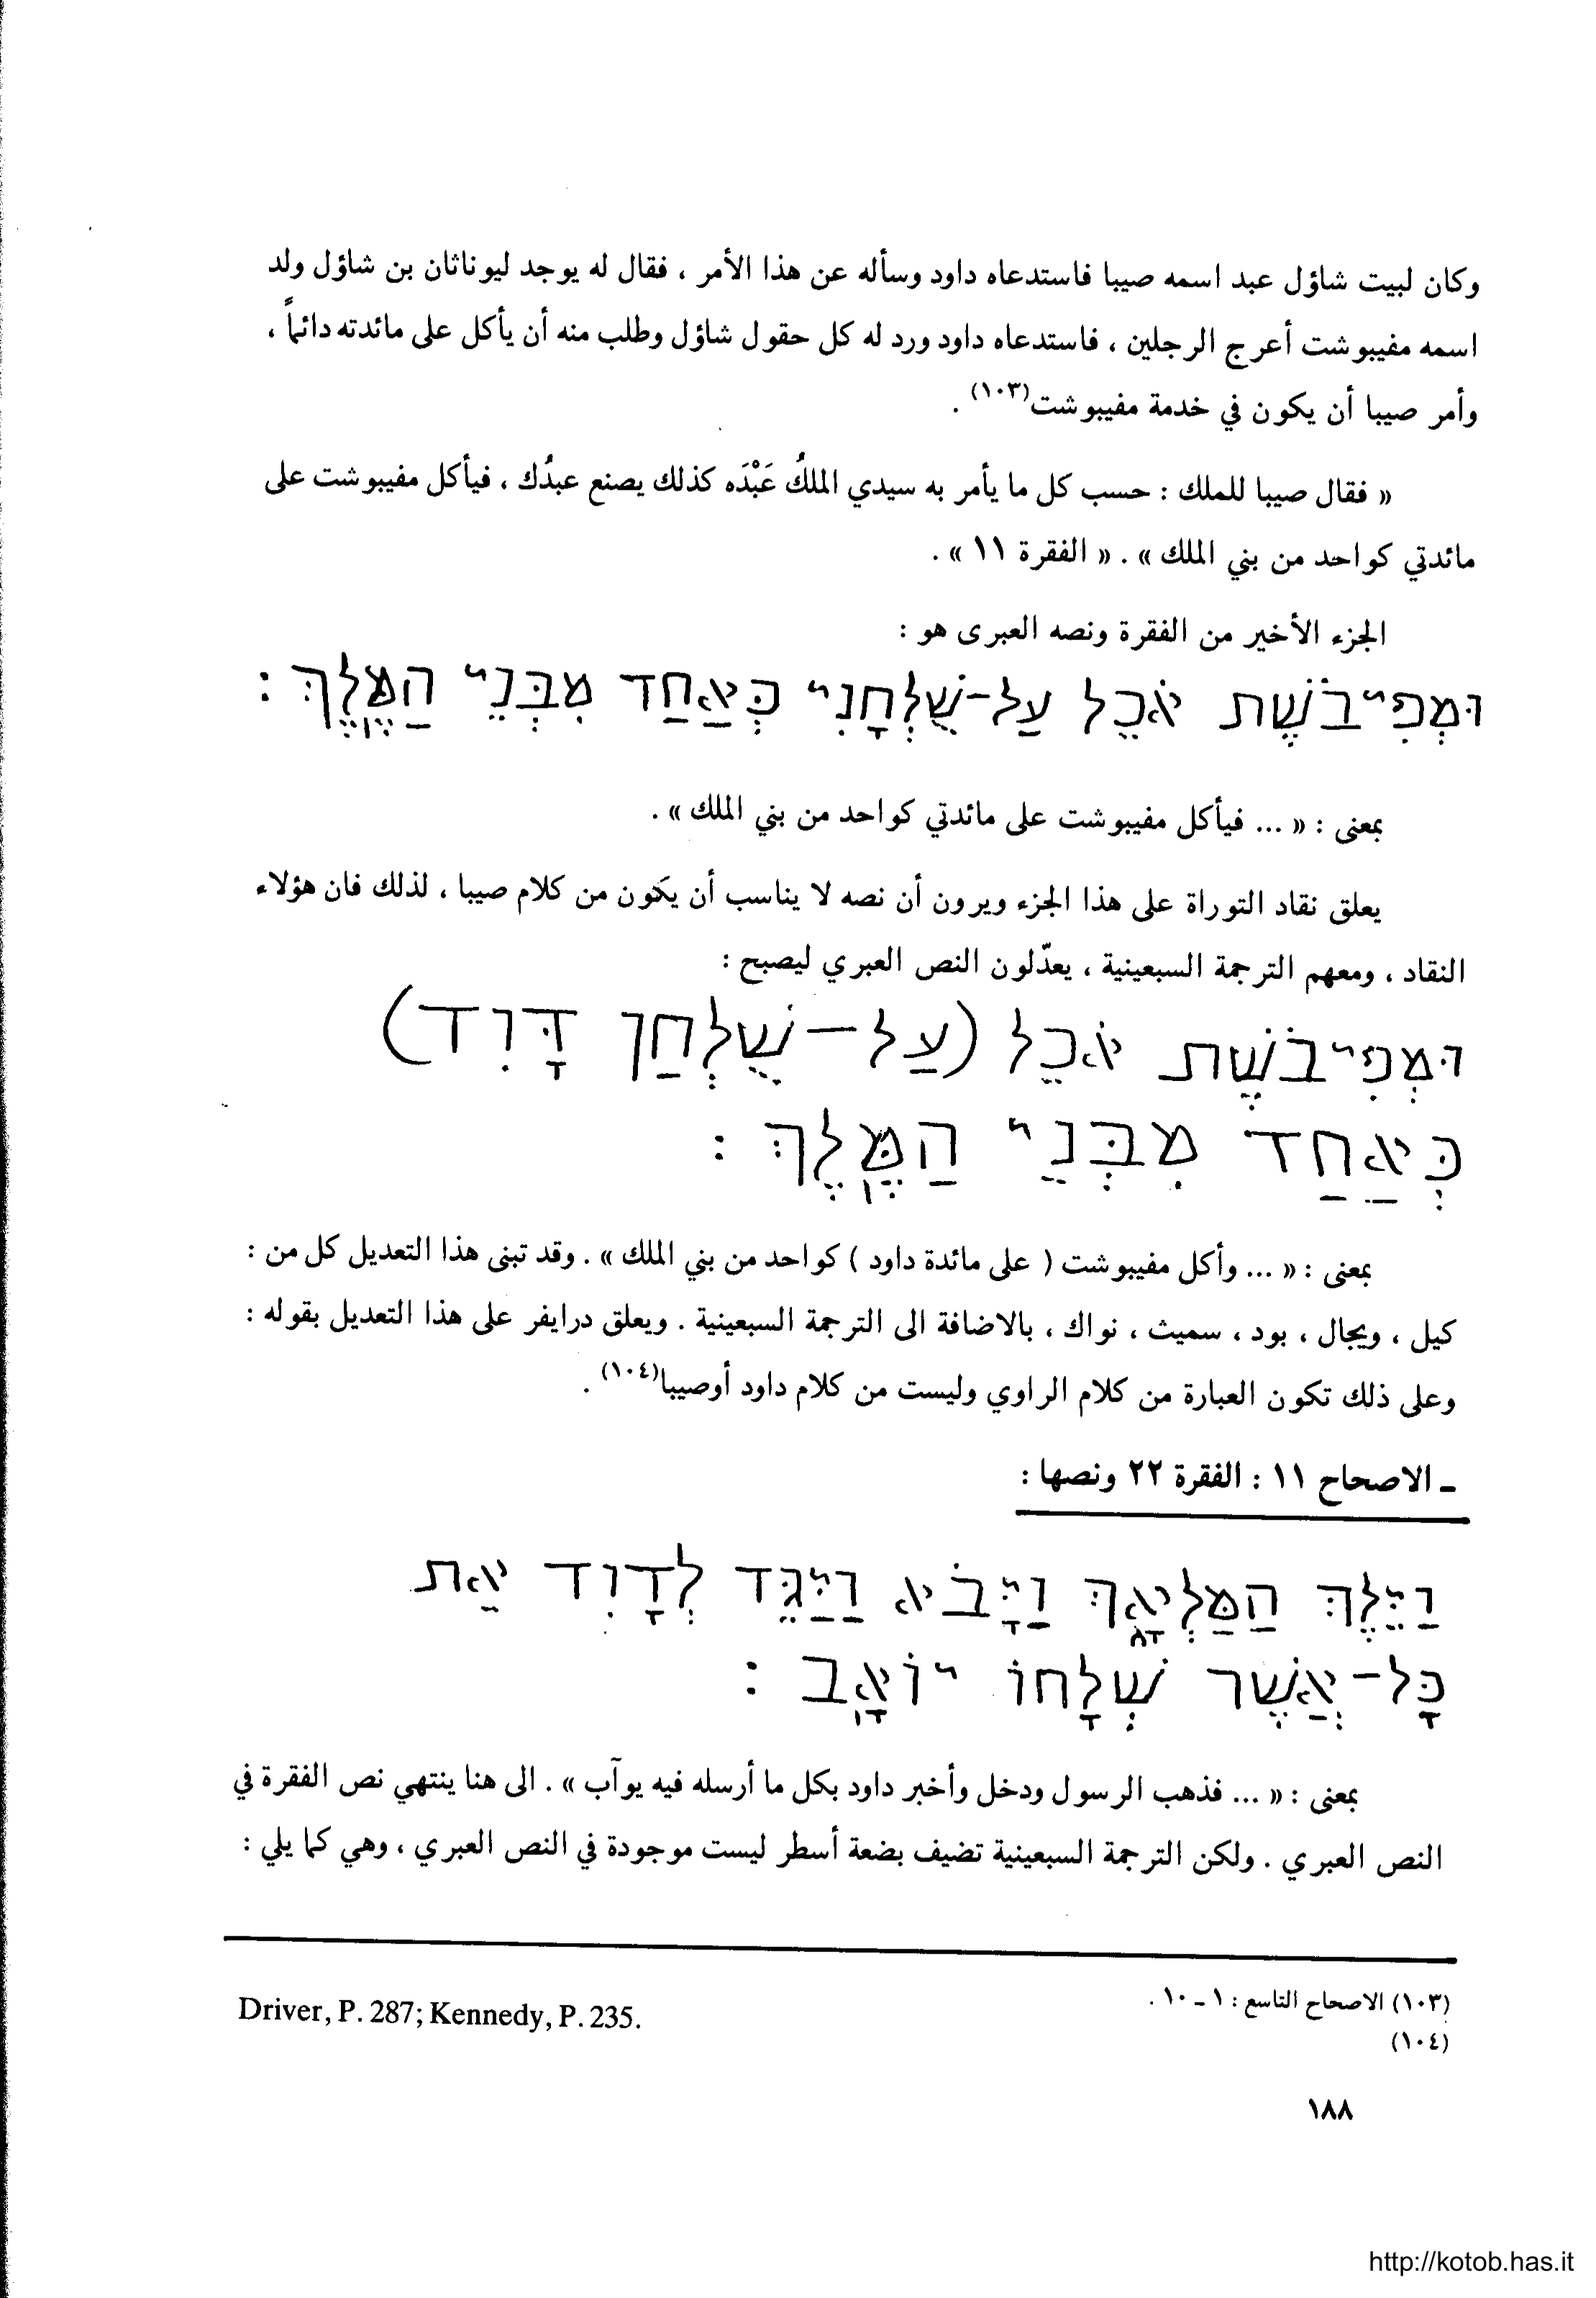 وكان لبيت شاؤل عبد اسمه صيبا فاستدعاه داود وسأله عن هذا الأمر ، فقال له يوجد ليوناثان بن شاؤل ولد
اسمه مفيبوشت أعرج الرجلين ، فاستدعاه داود ورد له كل حقول شاؤل وطلب منه أن يأكل على مائدته دائماً ،
وأمر صيبا أن يكون في خدمة مفيبوشت(١٠٣) .
« فقال صيبا للملك : حسب كل ما يأمر به سيدي الملكُ عَبْدَه كذلك يصنع عبدُك ، فيأكل مفيبوشت على
مائدتي كواحد من بني الملك » . « الفقرة ١١ » .
الجزء الأخير من الفقرة ونصه العبرى هو :
וּמְפִיבֹשֶׁת אֹכֵל עַל-שֻׁלְחָנִי כְּאַחַד מִבְּנֵי הַמֶּלֶךְ :
بمعنى : « ... فيأكل مفيبوشت على مائدتي كواحد من بني الملك » .
يعلق نقاد التوراة على هذا الجزء ويرون أن نصه لا يناسب أن يكون من كلام صيبا ، لذلك فان هؤلاء
النقاد ، ومعهم الترجمة السبعينية ، يعدّلون النص العبري ليصبح :
וּמְפִיבֹשֶׁת אֹכֵל (עַל-שֻׁלְחַן דָּוִד)
כְּאַחַד מִבְּנֵי הַמֶּלֶךְ :
بمعنى : « ... وأكل مفيبوشت ( على مائدة داود ) كواحد من بني الملك » . وقد تبنى هذا التعديل كل من :
كيل ، ويجال ، بود ، سميث ، نواك ، بالاضافة الى الترجمة السبعينية . ويعلق درايفر على هذا التعديل بقوله :
وعلى ذلك تكون العبارة من كلام الراوي وليست من كلام داود أوصيبا(١٠٤) .
ـ الاصحاح ١١ : الفقرة ٢٢ ونصها :
וַיֵּלֶךְ הַמַּלְאָךְ וַיָּבֹא וַיַּגֵּד לְדָוִד אֵת
כָּל-אֲשֶׁר שְׁלָחוֹ יוֹאָב :
بمعنى : « ... فذهب الرسول ودخل وأخبر داود بكل ما أرسله فيه يوآب » . الى هنا ينتهي نص الفقرة في
النص العبري . ولكن الترجمة السبعينية تضيف بضعة أسطر ليست موجودة في النص العبري ، وهي كما يلي :
(١٠٣) الاصحاح التاسع : ١ ـ ١٠ .
(١٠٤) Driver, P. 287; Kennedy, P. 235.
١٨٨
http://kotob.has.it